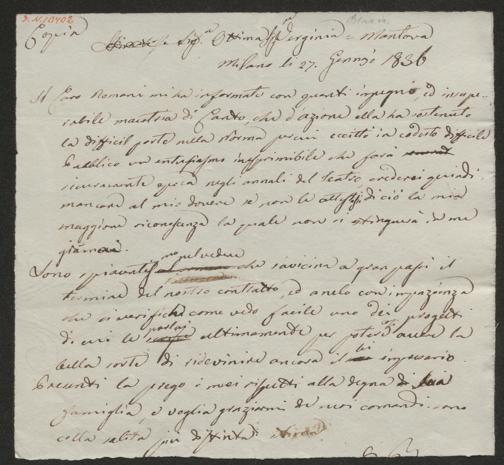 Copia
Sig.ra Virginia = Mantova
Milano le 27. Gennajo 1836
Il Caro Romani mi ha informato con quanti impegno, ed insupe-
rabile maestria di Canto, che d'azione ella ha sostenuto
la difficil parte nella Norma eccitò in codesto difficile
Pubblico un entusiasmo inesprimibile che farà
sicuramente epoca negli annali del Teatro crederei quindi
mancare al mio dovere se non le di ciò la mia
maggiore riconoscenza la quale non si estinguerà in me
giammai.
Sono nel vedere che s'avicina a gran passi il
termine del nostro contratto, ed anelo con impazienza
che si verifichi come vedo facile uno dei progetti
di cui le ultimamente per poter avere la
bella sorte di ridivenire ancora il impresario.
la prego i miei rispetti alla degna di sua
famiglia e voglia graziarmi de' suoi comandi. sono
colla solita più distinta stima